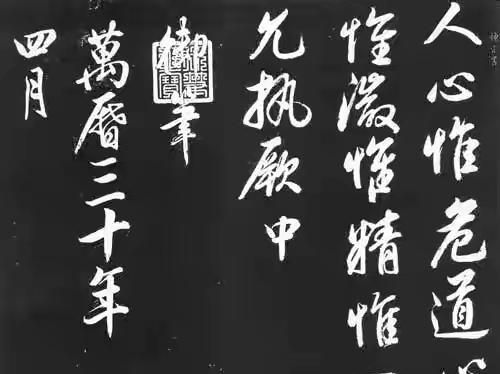 人心惟危道心
惟微惟精惟一
允執厥中
御筆
萬曆三十年
四月